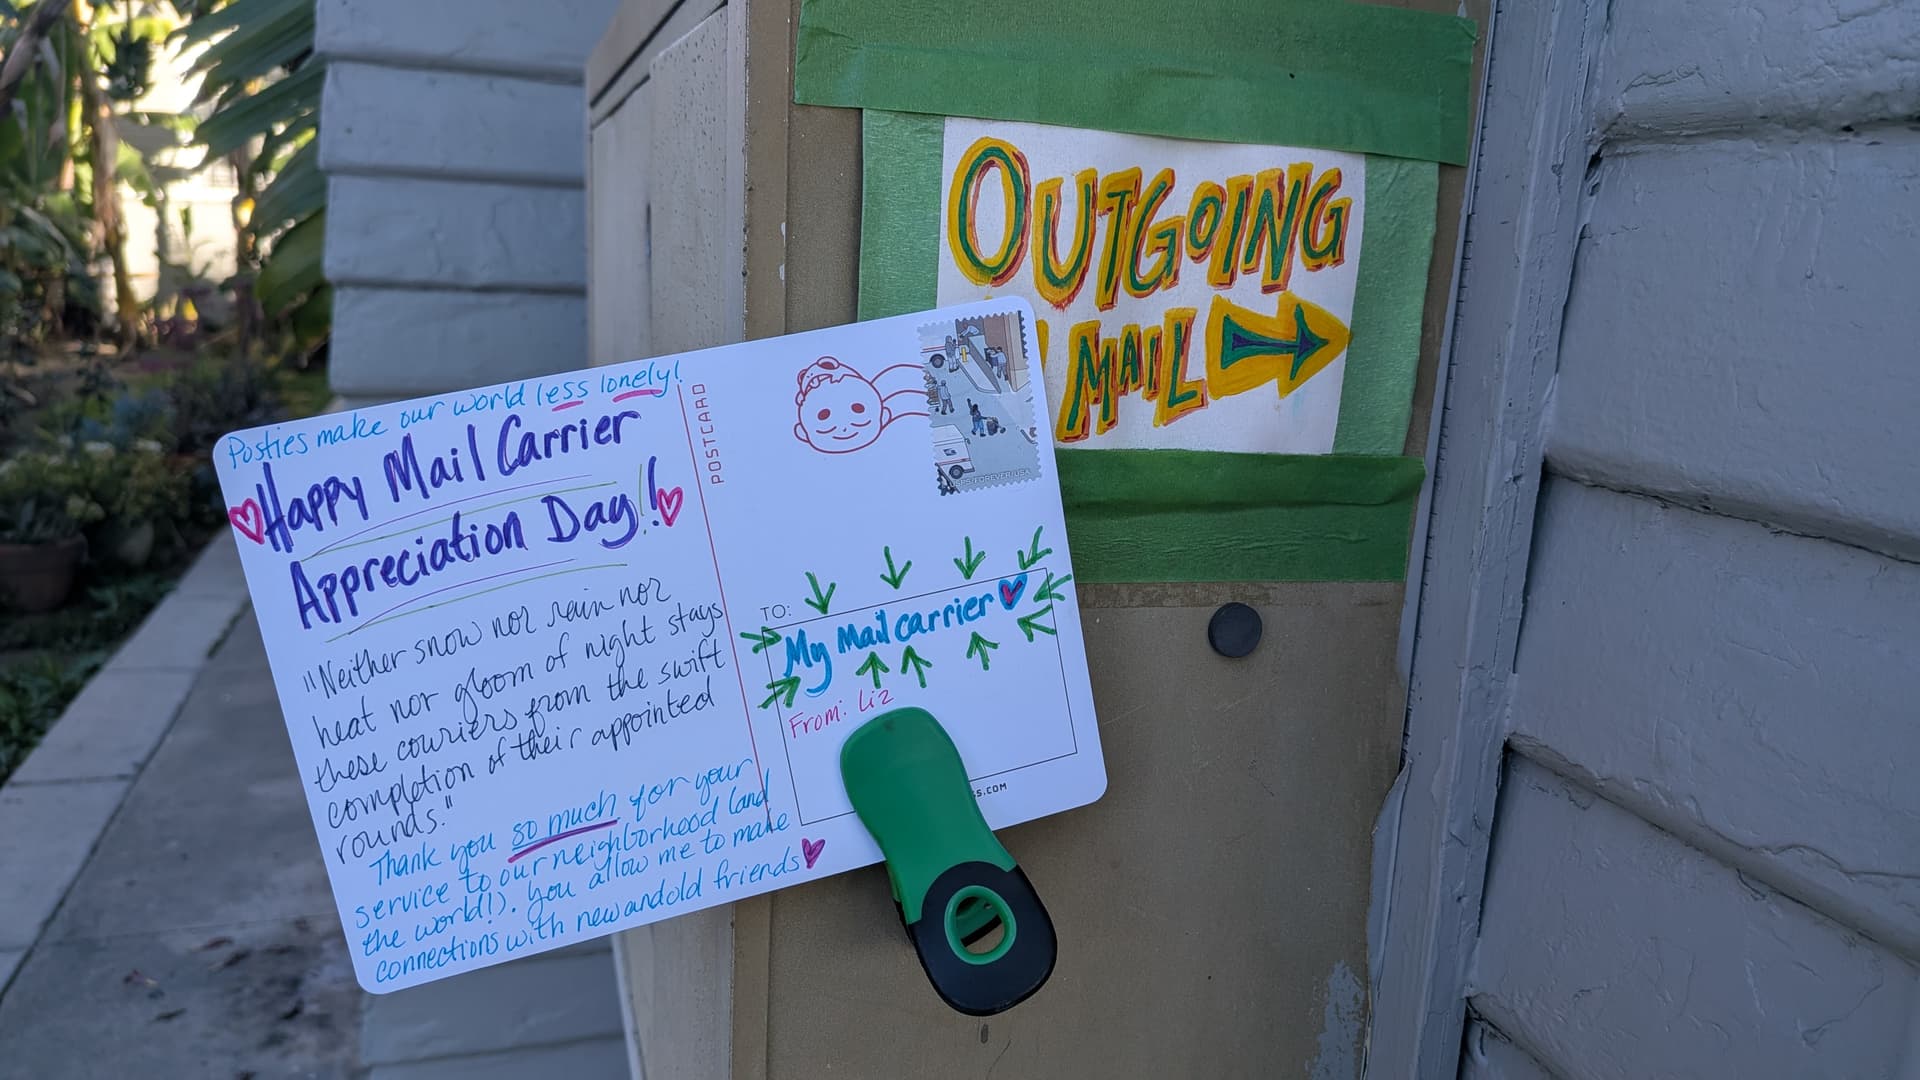 OUTGOING
MAIL
Posties make our world less lonely!
Happy Mail Carrier
Appreciation Day!
"Neither snow nor rain nor
heat nor gloom of night stays
these couriers from the swift
completion of their appointed
rounds."
Thank you so much for your
service to our neighborhood (and
the world!). You allow me to make
connections with new and old friends
POSTCARD
FOREVER/USA
TO:
My Mail carrier
From: Liz